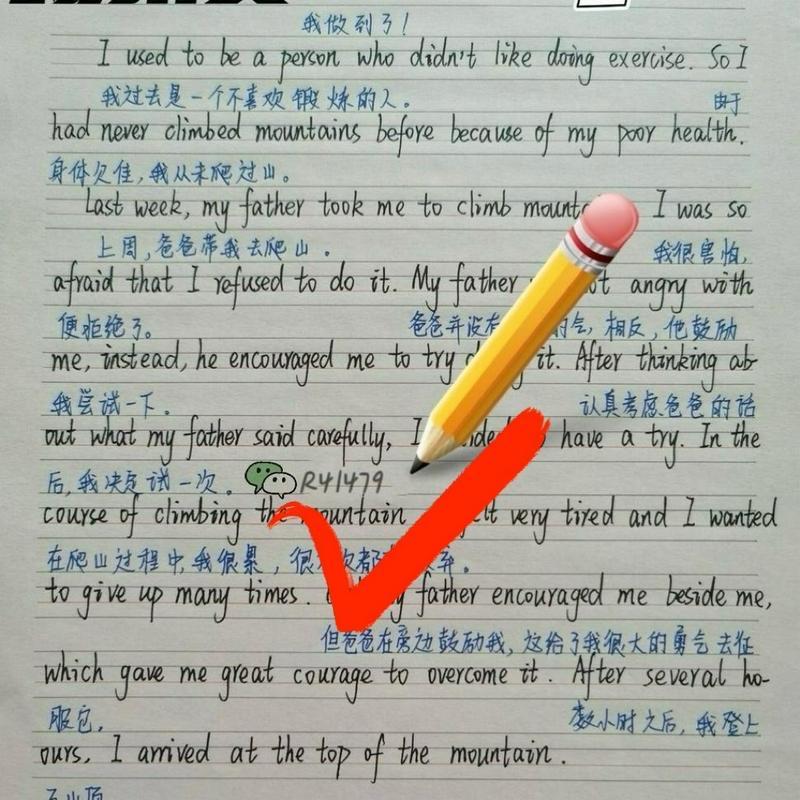 我做到了!
I used to be a person who didn't like doing exercise. So I
我过去是一个不喜欢锻炼的人。 由于
had never climbed mountains before because of my poor health.
身体欠佳,我从未爬过山。
Last week, my father took me to climb I was so
上周,爸爸带我去爬山。 我很害怕,
afraid that I refused to do it. My father angry with
便拒绝了。 爸爸并没有 气,相反,他鼓励
me, instead, he encouraged me to try it. After thinking ab-
我尝试一下。 认真考虑爸爸的话
out what my father said carefully, I have a try. In the
后,我决定试一次。 R41479
course of climbing the mountain very tired and I wanted
在爬山过程中,我很累,很 次都 弃。
to give up many times. father encouraged me beside me,
但爸爸在旁边鼓励我,这给了我很大的勇气去征
which gave me great courage to overcome it. After several ho-
服它。 数小时之后,我登上
ours, I arrived at the top of the mountain.